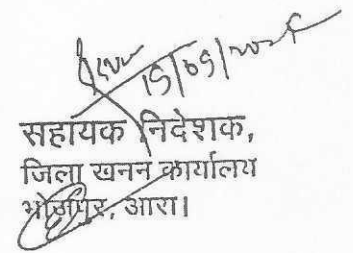 15/09/
सहायक निदेशक,
जिला खनन कार्यालय
भोजपुर, आरा।